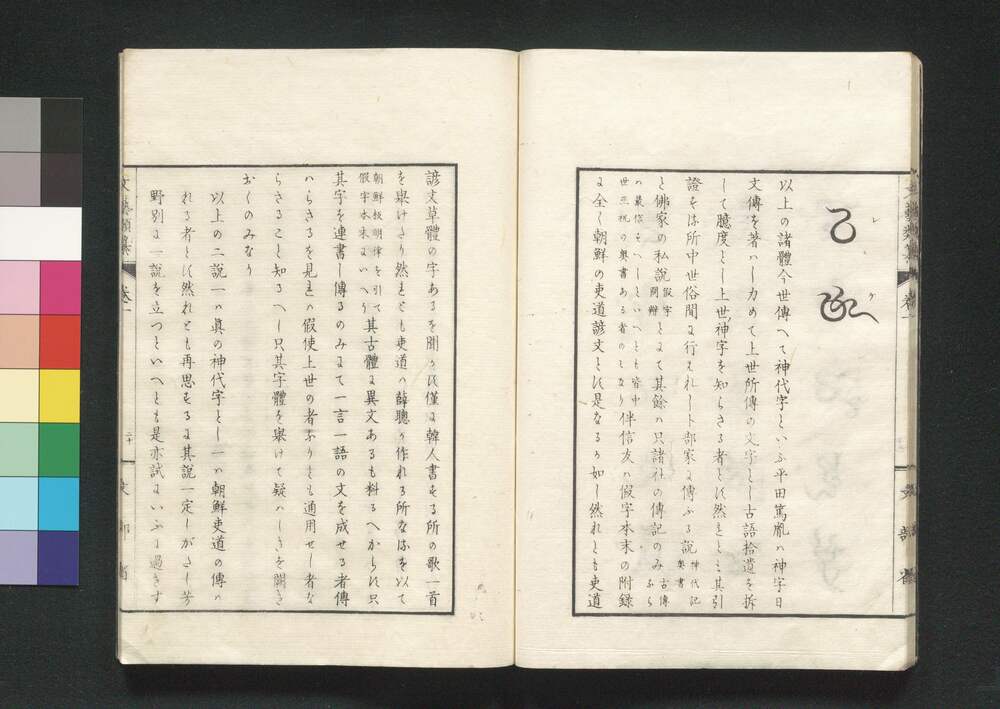 レ
ケ
以上の諸體今世傳ヘて神代字といふ平田篤胤ハ神字日
文傳を著ハし力めて上世所傳の文字とし古語拾遺を拆
して臆度とし上世神字を知らさる者と什然れとも其引
證する所中世俗間に行はれ卜部家に傳ふる説 神代記奥書
と佛家の私説 假字問辨 とにて其餘ハ只諸社の傳記のみ 古傳ならハ最依るへしといへとも皆中世巫祝の奥書ある者のミなり 伴信友ハ假字本末の附録
に全く朝鮮の吏道諺文と什是なるか如し然れとも吏道
諺文草體の字あるを聞か什僅に韓人書する所の歌一首
を擧けたり然れとも吏道ハ薛聰か作れる所なるを以て
朝鮮板明律を引て假字本末にいへり 其古體に異文あるも料るへからす只
其字を連書し傳るのみにて一言一語の文を成せる者傳
ハらさるを見れハ假使上世の者なりとも通用せし者な
らさること知るへし只其字體を擧けて疑ハしきを闕き
おくのみなり
以上の二説一ハ眞の神代字とし一ハ朝鮮吏道の傳ハ
れる者と什然れとも再思するに其説一定しがたし芳
野別に一説を立つといへとも是亦試にいふに過きす
文藝類纂 卷一
文部省